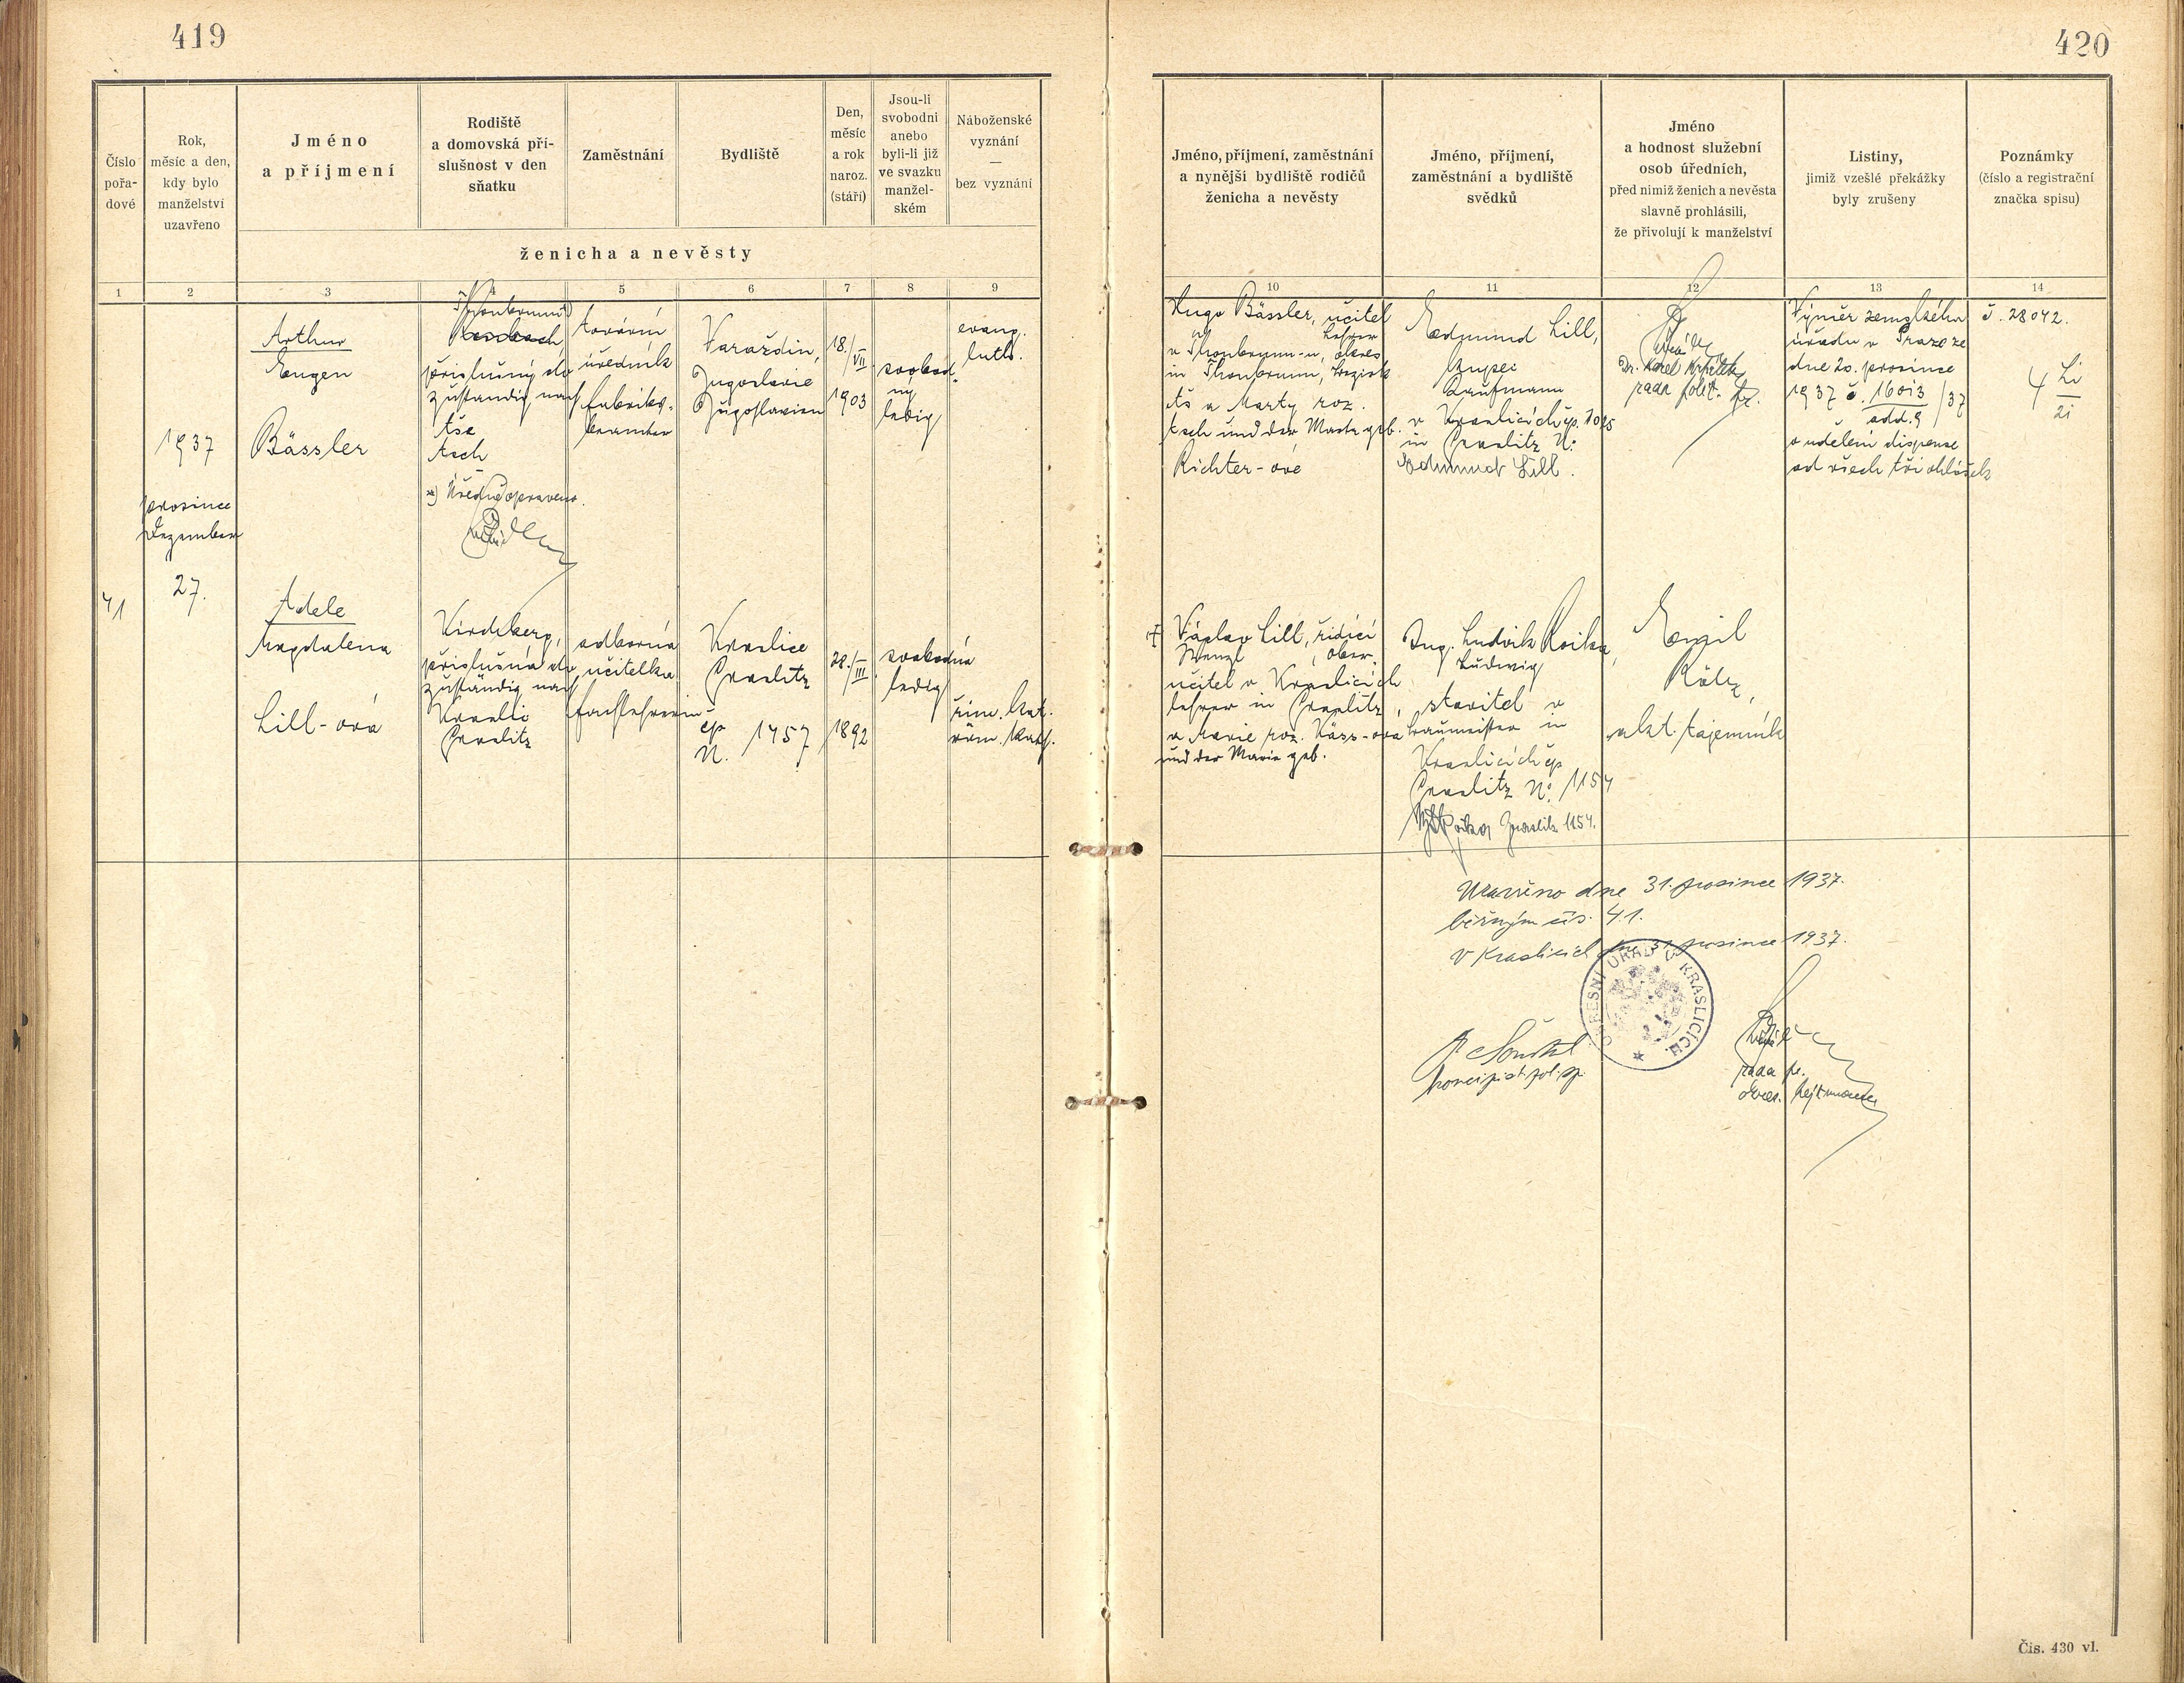 419
420
Číslo
pořa-
dové
Rok,
měsíc a den,
kdy bylo
manželství
uzavřeno
Jméno
a příjmení
Rodiště
a domovská pří-
slušnost v den
sňatku
Zaměstnání
Bydliště
Den,
měsíc
a rok
naroz.
(stáří)
Jsou-li
svobodni
anebo
byli-li již
ve svazku
manžel-
ském
Náboženské
vyznání
—
bez vyznání
ženicha a nevěsty
Jméno, příjmení, zaměstnání
a nynější bydliště rodičů
ženicha a nevěsty
Jméno, příjmení,
zaměstnání a bydliště
svědků
Jméno
a hodnost služební
osob úředních,
před nimiž ženich a nevěsta
slavně prohlásili,
že přivolují k manželství
Listiny,
jimiž vzešlé překážky
byly zrušeny
Poznámky
(číslo a registrační
značka spisu)
1 2 3 4 5 6 7 8 9 10 11 12 13 14
41
1937
prosince
Dezember
27.
Arthur
Eugen
Bässler
Thonbrunn
příslušný do
zuständig nach
Aše
Asch
*) Úředně opraveno.
tovární
úředník
Fabriks-
beamter
Varaždin,
Jugoslavie
Jugoslavien
18./VII
1903
svobod-
ný
ledig
evang.
luth.
Hugo Bässler, učitel
Lehrer
v Thonbrunn-u, okres
in Thonbrunn, Bezirk
Aš a Marty roz.
Asch und der Marta geb.
Richter-ové
Edmund Lill,
kupec
Kaufmann
v Kraslicích čp. 1085
in Graslitz N:
Edmund Lill.
Dr. Karel
rada polit.
Výměr zemského
úřadu v Praze ze
dne 20. prosince
1937 č. 16013/37
odd. 9
o udělení dispense
od všech tří ohlášek
č. 28042.
4 Li
21
Adele
Magdalena
Lill-ová
Kirchberg,
příslušná do
zuständig nach
Kraslic
Graslitz
odborná
učitelka
Fachlehrerin
Kraslice
Graslitz
čp
N. 1457
28./III
1892
svobodná
ledig
řím. kat.
röm. kath.
Václav Lill, řídící
Wenzl, Ober-
učitel v Kraslicích
lehrer in Graslitz,
a Marie roz. Käss-ová
und der Marie geb.
Ing. Ludvik Roika,
Ludewig
stavitel v
Baumeister in
Kraslicích čp
Graslitz N: 1154
Graslitz 1154.
Emil
Kölz,
akt. tajemník
Uzavřeno dne 31. prosince 1937.
běžným čís. 41.
V Kraslicích dne 31. prosince 1937.
OKRESNÍ ÚŘAD V KRASLICÍCH
koncipist pol. sp.
rada
okres. hejtman
Čís. 430 vl.